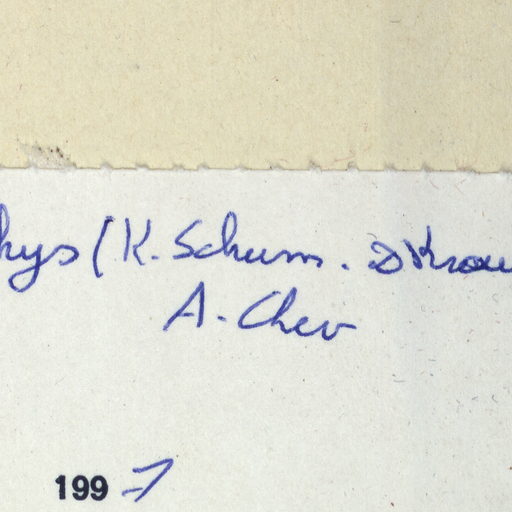 hys (K. Schum. & Krau
A. Chev
1997